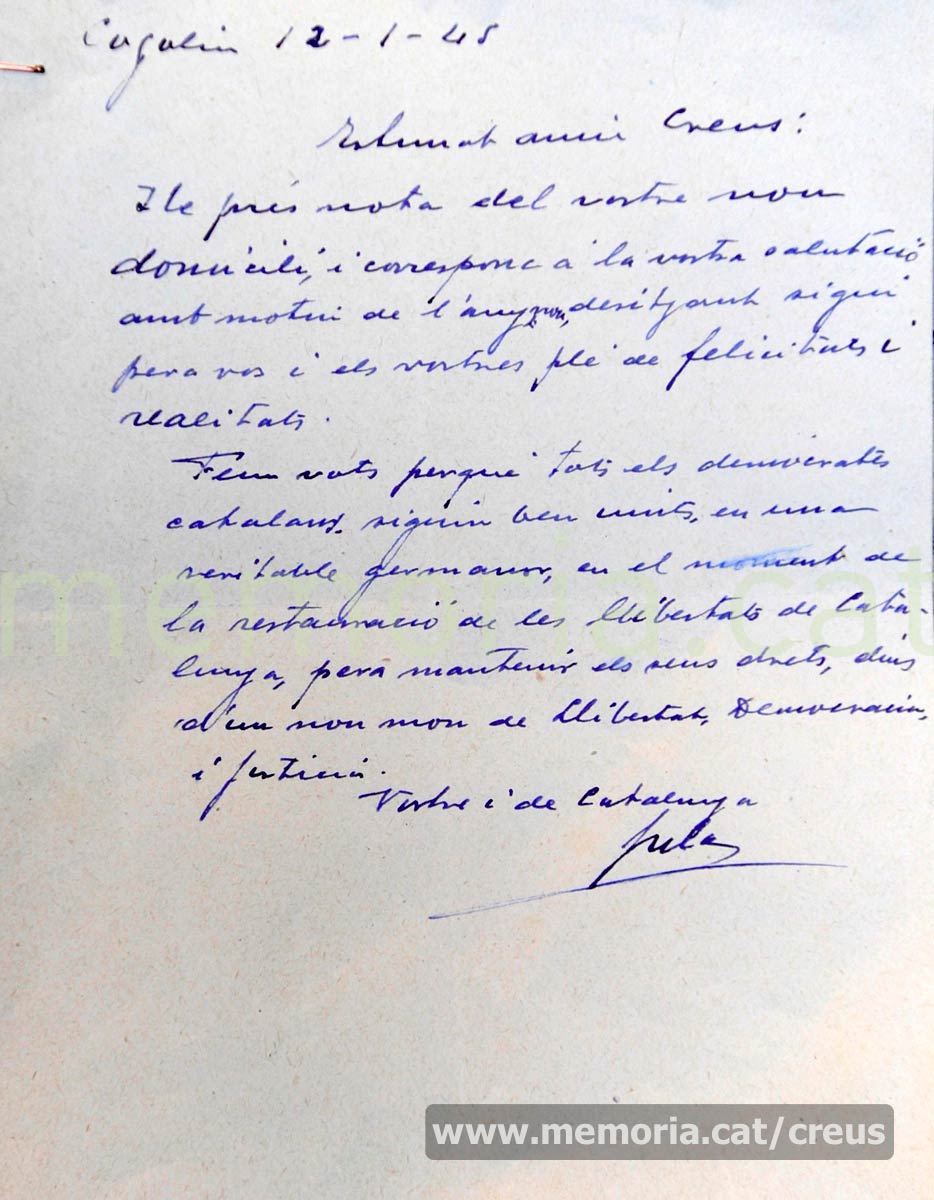 Cogolin 12-1-45
Estimat amic Creus:
He prés nota del vostre nou
domicili, i corresponc a la vostra salutació
amb motiu de l'any nou, desitjant sigui
pera vos i els vostres plé de felicitats i
realitats.
Fem vots perquè tots els demócrates
catalans, siguin ben units, en una
veritable germanor, en el moment de
la restauració de les llibertats de Cata-
lunya, pera mantenir els seus drets, dins
d'un nou mon de Llibertat, Democracia,
i Justicia.
Vostre i de Catalunya
memoria.cat
www.memoria.cat/creus